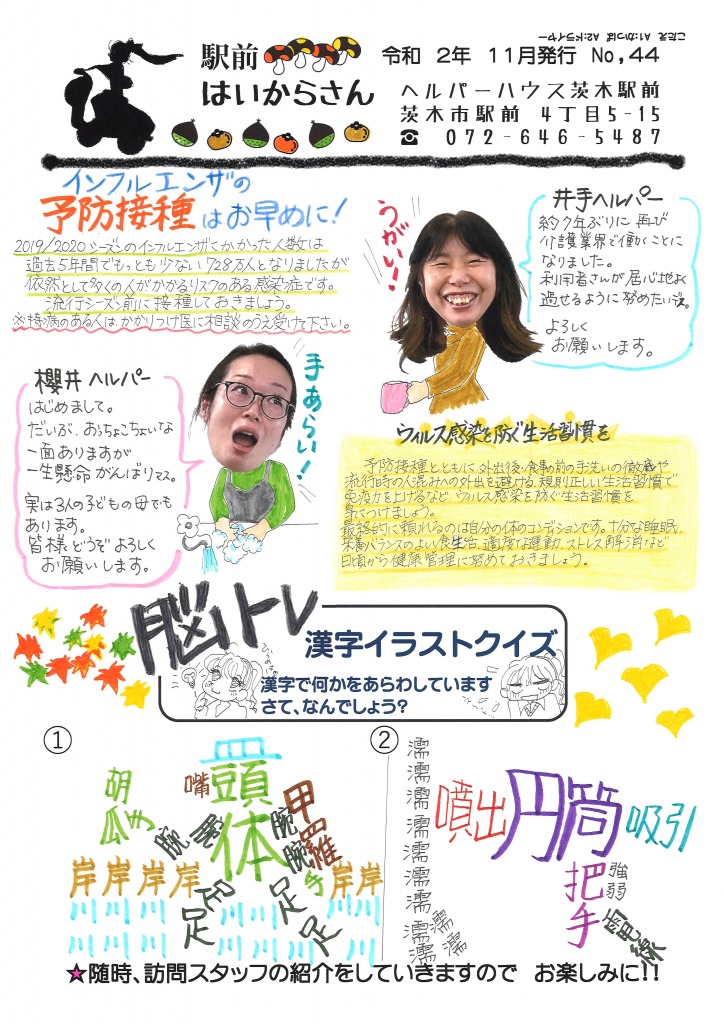 こたえ A1:かっぱ A2:ドライヤー
駅前
はいからさん
令和 2年 11月発行 No,44
ヘルパーハウス茨木駅前
茨木市駅前 4丁目5-15
☎ 072-646-5487
インフルエンザの
予防接種はお早めに!
2019/2020シーズンのインフルエンザにかかった人数は
過去5年間でもっとも少ない728万人となりましたが
依然として多くの人がかかるリスクのある感染症です。
流行シーズン前に接種しておきましょう。
※持病のある人は、かかりつけ医に相談のうえ受けて下さい。
うがい!
井手ヘルパー
約7年ぶりに再び
介護業界で働くことに
なりました。
利用者さんが居心地よく
過せるように努めたいです。
よろしく
お願いします。
櫻井ヘルパー
はじめまして。
だいぶ、おっちょこちょいな
一面ありますが
一生懸命がんばりマス。
実は3人の子どもの母でも
あります。
皆様どうぞよろしく
お願いします。
手あらい!
ウィルス感染を防ぐ生活習慣を
予防接種とともに外出後・食事の前の手洗いの徹底や
流行時の人混みへの外出を避ける、規則正しい生活習慣で
免疫力を上げるなど、ウィルス感染を防ぐ生活習慣を
身につけましょう。
最終的に頼れるのは自分の体のコンディションです。十分な睡眠、
栄養バランスのよい食生活、適度な運動、ストレス解消など
日頃から健康管理に努めておきましょう。
脳トレ
漢字イラストクイズ
漢字で何かをあらわしています
さて、なんでしょう?
①
皿
嘴 頭
胡瓜 手 腕 腕 体 腕 腕 手 甲羅
岸 岸 岸 岸 岸 岸
足 足 足 足
川 川 川 川 川 川 川
川 川 川 川 川 川
②
濡 濡 濡 濡 濡 濡 濡 濡 濡 濡 濡
噴出 円筒 吸引
把手
強弱
電線
★随時、訪問スタッフの紹介をしていきますので お楽しみに!!